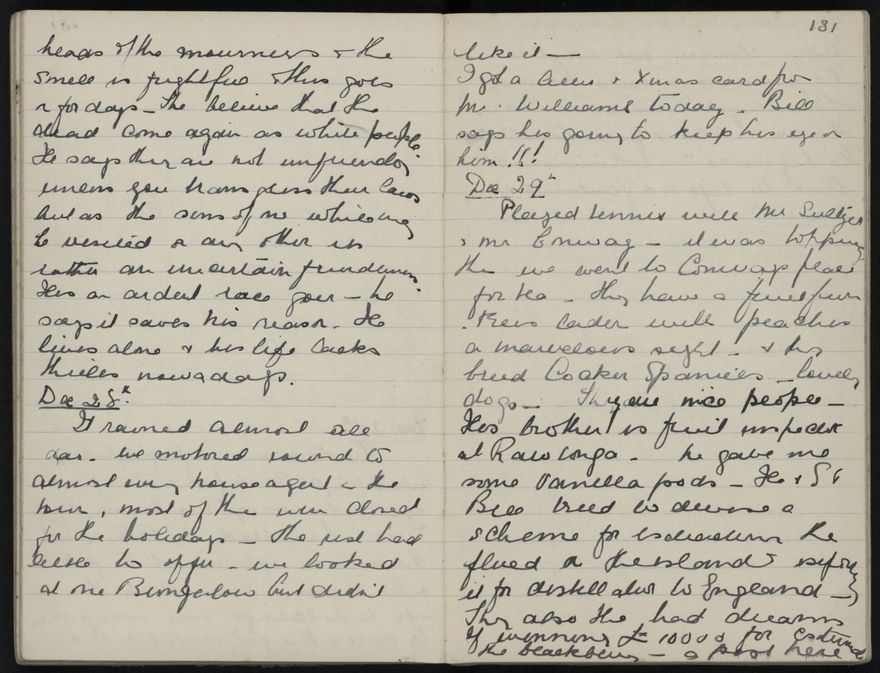 heads of the mourners & the
smell is frightful & this goes
on for days – The believe that the
dead come again as white people.
He says they are not unfriendly
unless you transgress their laws
but as the sins of no white may
be visited on any other its
rather an uncertain friendliness.
Hes an ardent race goer – he
says it saves his reason. He
lives alone & his life lacks
thrills nowadays.
Dec 28th.
It rained almost all
day. We motored round to
almost every house agent in the
town, most of the were closed
for the holidays – the rest had
little to offer – we looked
at one Bungalow but didn't
131
like it —
I got a letter & Xmas card from
Mr. Williams today. Bill
says hes going to keep his eye on
him!!!
Dec 29th
Played tennis with Mr Sultzer
& Mr Conway – it was topping
the we went to Conways place
for tea – they have a fine
trees laden with peaches
a marvelous sight – & they
breed Cocker Spaniels – lovely
dogs – They are nice people –
His brother is fruit inspector
at Rarotonga – he gave me
some Vanilla pods – He & St
Bill tried to devise a
scheme for the
on the island &
it for distillation to England –
They also the had dreams
of winning £10000 for
the blackberry – a pest here